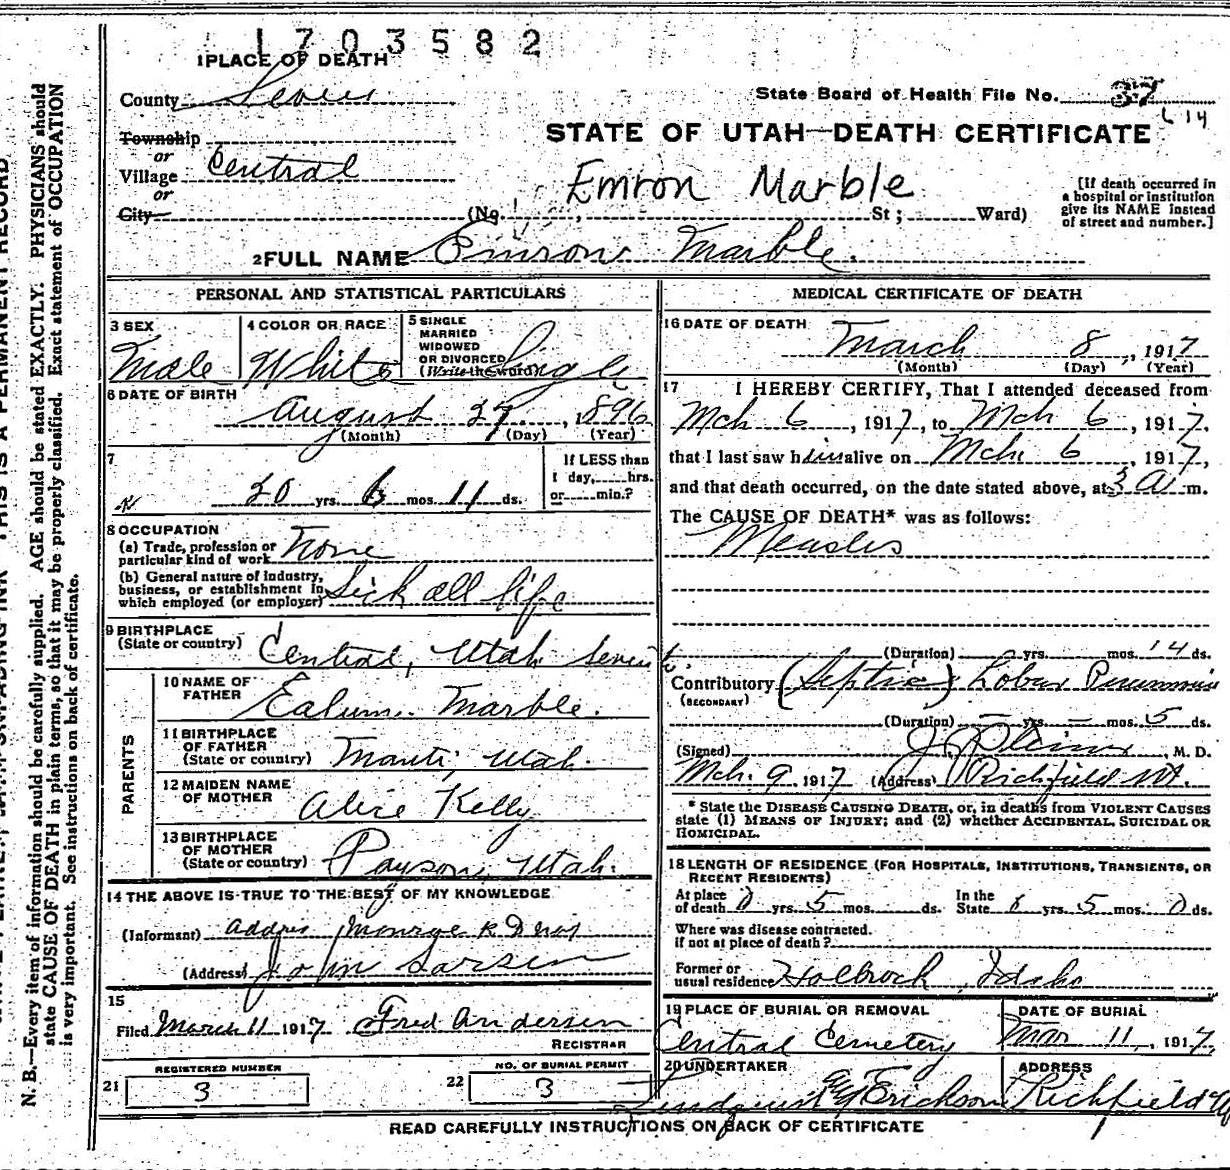 1703582
1 PLACE OF DEATH
County Sevier
State Board of Health File No. 37
L 14
Township
or
Village Central
or
City
STATE OF UTAH—DEATH CERTIFICATE
Emron Marble
(No. St; Ward)
[If death occurred in a hospital or institution give its NAME instead of street and number.]
2 FULL NAME Emron Marble.
PERSONAL AND STATISTICAL PARTICULARS
3 SEX
Male
4 COLOR OR RACE
White
5 SINGLE
MARRIED
WIDOWED
OR DIVORCED
(Write the word) Single
6 DATE OF BIRTH
August 27, 1896
(Month) (Day) (Year)
7
20 yrs. 6 mos. 11 ds.
If LESS than
1 day, hrs.
or min.?
8 OCCUPATION
(a) Trade, profession or
particular kind of work None
(b) General nature of industry,
business, or establishment in
which employed (or employer) Sick all life
9 BIRTHPLACE
(State or country) Central, Utah Sevier
PARENTS
10 NAME OF
FATHER Marble.
11 BIRTHPLACE
OF FATHER
(State or country) Manti, Utah.
12 MAIDEN NAME
OF MOTHER Alice Kelly
13 BIRTHPLACE
OF MOTHER
(State or country) Payson, Utah.
14 THE ABOVE IS TRUE TO THE BEST OF MY KNOWLEDGE
(Informant) Address Monroe
(Address) John Larsen
15
Filed March 11 1917 Fred Andersen
REGISTRAR
21
REGISTERED NUMBER
3
22
NO. OF BURIAL PERMIT
3
MEDICAL CERTIFICATE OF DEATH
16 DATE OF DEATH
March 8, 1917
(Month) (Day) (Year)
17 I HEREBY CERTIFY, That I attended deceased from
Mch 6, 1917, to Mch 6, 1917,
that I last saw him alive on Mch. 6, 1917,
and that death occurred, on the date stated above, at 3 A m.
The CAUSE OF DEATH* was as follows:
Measles
(Duration) yrs. mos. 14 ds.
Contributory (Septic) Lobar Pneumonia
(SECONDARY)
(Duration) — yrs. — mos. 5 ds.
(Signed) M. D.
Mch. 9 1917 (Address) Richfield Ut.
* State the DISEASE CAUSING DEATH, or, in deaths from VIOLENT CAUSES
state (1) MEANS OF INJURY; and (2) whether ACCIDENTAL, SUICIDAL OR
HOMICIDAL.
18 LENGTH OF RESIDENCE (FOR HOSPITALS, INSTITUTIONS, TRANSIENTS, OR
RECENT RESIDENTS)
At place
of death 0 yrs. 5 mos. ds.
In the
State yrs. 5 mos. 0 ds.
Where was disease contracted.
if not at place of death?
Former or
usual residence Holbrock, Idaho
19 PLACE OF BURIAL OR REMOVAL
Central Cemetery
DATE OF BURIAL
Mar 11, 1917,
20 UNDERTAKER
Erickson
ADDRESS
Richfield
READ CAREFULLY INSTRUCTIONS ON BACK OF CERTIFICATE
N. B.—Every item of information should be carefully supplied. AGE should be stated EXACTLY. PHYSICIANS should
state CAUSE OF DEATH in plain terms, so that it may be properly classified. Exact statement of OCCUPATION
is very important. See instructions on back of certificate.